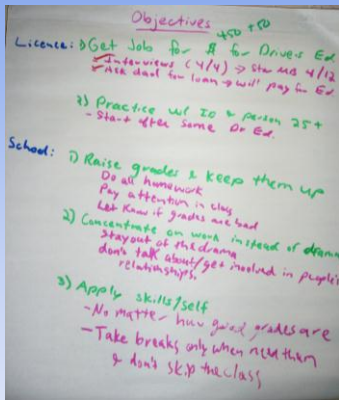 Objectives
450 + 50
Licence: 1) Get Job for $ for Drivers Ed.
Interviews (4/4) → Start 4/12
Ask dad for loan → will pay for Ed.
2) Practice w/ ID & person 25+
- Start after some Dr Ed.
School: 1) Raise grades & keep them up
Do all homework
Pay attention in class
Let know if grades are bad
2) Concentrate on work instead of drama
Stay out of the drama
don't talk about/get involved in people's
relationships.
3) Apply skills/self
- No matter how good grades are
- Take breaks only when need them
& don't skip the class